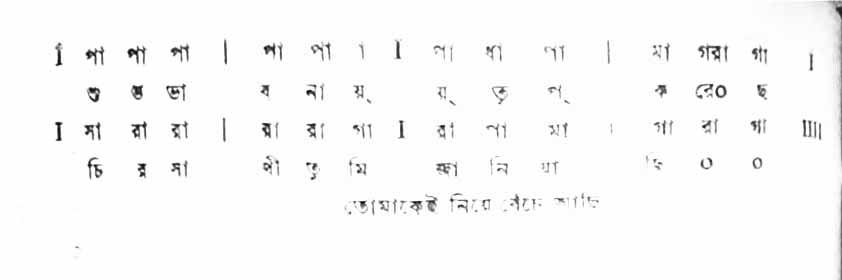 I পা পা পা | পা পা া I পা ধা পা | মা গরা গা I
শু ভ ভা ব না য়্ য়্ তৃ প্ ক রে০ ছ
I সা রা রা | রা রা গা I রা পা মা । গা রা গা IIII
চি র সা থী তু মি জা নি য়া ছি ০ ০
তোমাকেই নিয়ে বেঁচে আছি